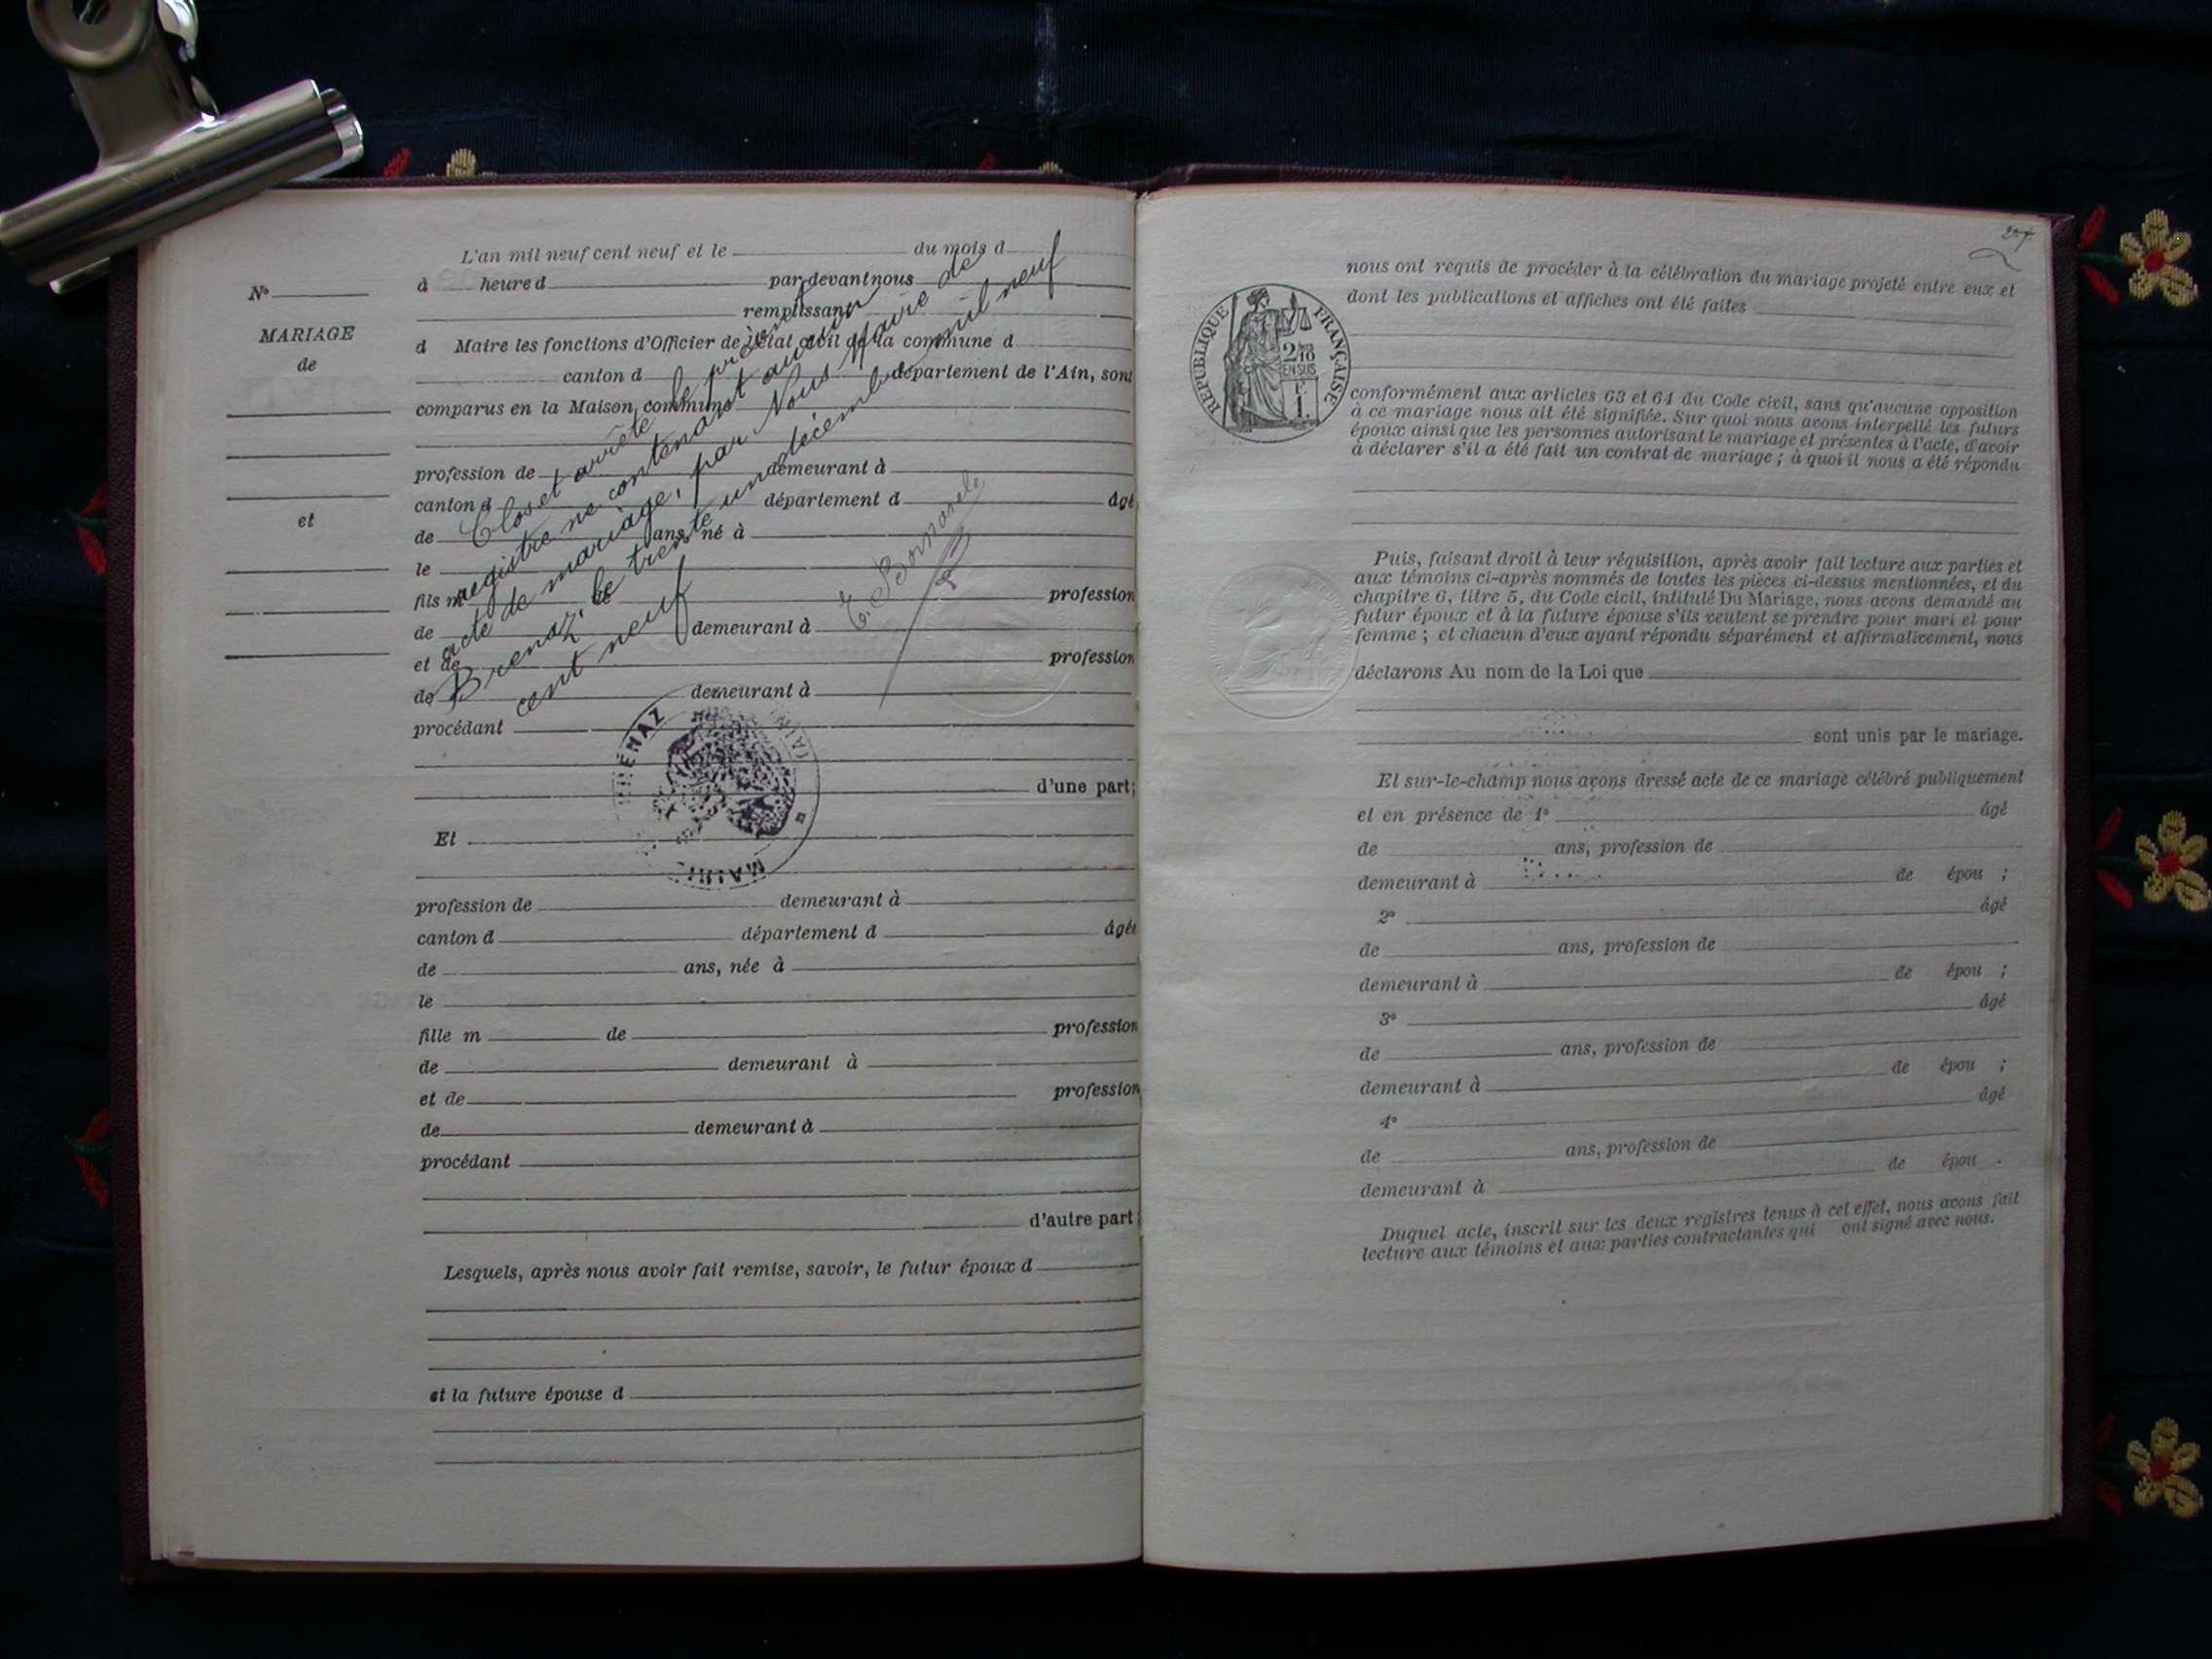 L'an mil neuf cent neuf et le du mois d
N°
à heure d par-devant nous
remplissant
MARIAGE
de
d Maire les fonctions d'Officier de l'état civil de la commune d
canton d département de l'Ain, sont
comparus en la Maison commune
profession de demeurant à
canton d département d âgé
et
de ans, né à
le
fils m de profession
de demeurant à
et de profession
de demeurant à
procédant
d'une part;
Et
profession de demeurant à
canton d département d âgée
de ans, née à
le
fille m de profession
de demeurant à
et de profession
de demeurant à
procédant
d'autre part
Lesquels, après nous avoir fait remise, savoir, le futur époux d
et la future épouse d
Clos et arrêté le présent
registre ne contenant aucun
acte de mariage, par Nous Maire de
Brenaz, le trente un décembre mil neuf
cent neuf
E. Bonnard
MAIRIE
RÉPUBLIQUE FRANÇAISE
2/10
EN SUS
1 F.
nous ont requis de procéder à la célébration du mariage projeté entre eux et
dont les publications et affiches ont été faites
conformément aux articles 63 et 64 du Code civil, sans qu'aucune opposition
à ce mariage nous ait été signifiée. Sur quoi nous avons interpellé les futurs
époux ainsi que les personnes autorisant le mariage et présentes à l'acte, d'avoir
à déclarer s'il a été fait un contrat de mariage ; à quoi il nous a été répondu
Puis, faisant droit à leur réquisition, après avoir fait lecture aux parties et
aux témoins ci-après nommés de toutes les pièces ci-dessus mentionnées, et du
chapitre 6, titre 5, du Code civil, intitulé Du Mariage, nous avons demandé au
futur époux et à la future épouse s'ils veulent se prendre pour mari et pour
femme ; et chacun d'eux ayant répondu séparément et affirmativement, nous
déclarons Au nom de la Loi que
sont unis par le mariage.
Et sur-le-champ nous avons dressé acte de ce mariage célébré publiquement
et en présence de 1° âgé
de ans, profession de
demeurant à de épou ;
2° âgé
de ans, profession de
demeurant à de épou ;
3° âgé
de ans, profession de
demeurant à de épou ;
4° âgé
de ans, profession de
demeurant à de épou .
Duquel acte, inscrit sur les deux registres tenus à cet effet, nous avons fait
lecture aux témoins et aux parties contractantes qui ont signé avec nous.